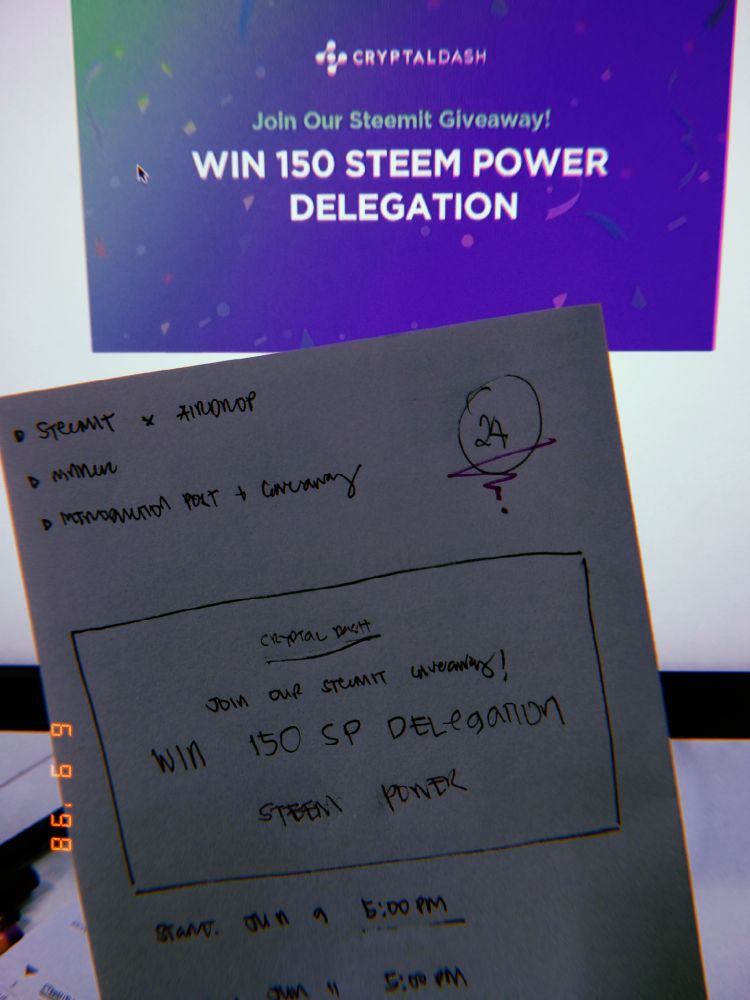 CRYPTALDASH
Join Our Steemit Giveaway!
WIN 150 STEEM POWER
DELEGATION
STEEMIT x AIRDROP
24
?
INTRODUCTION POST + Giveaway
CRYPTAL DASH
JOIN OUR STEEMIT Giveaway!
WIN 150 SP DELEgATION
STEEM POWER
START. JUN 9 5:00 PM
JUN 11 5:00 PM
6 9 '98